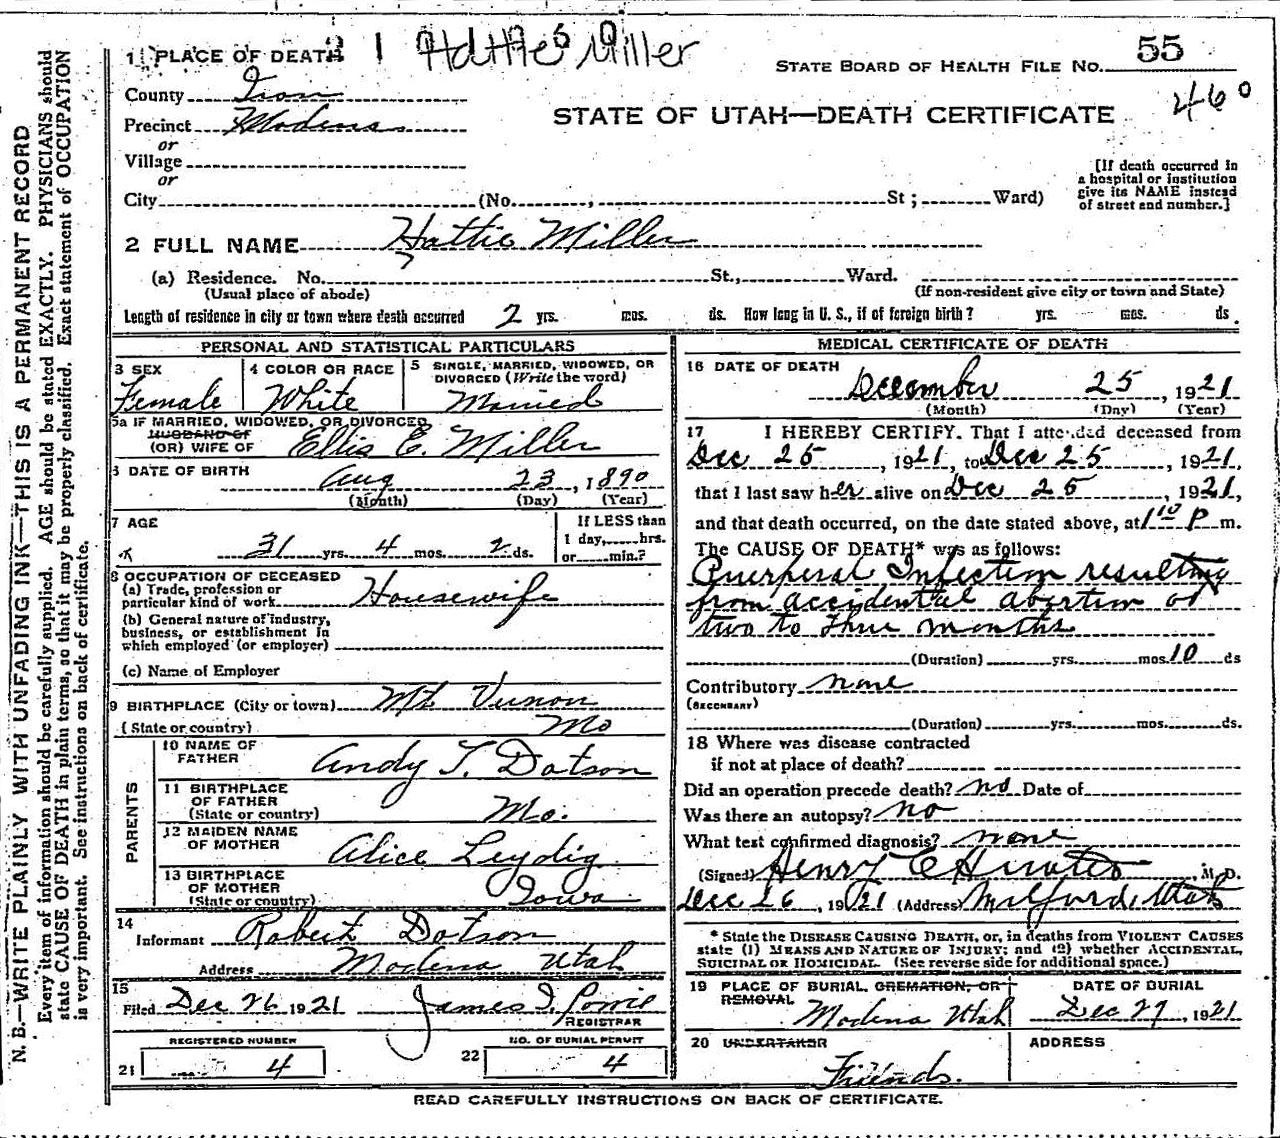 N. B.—WRITE PLAINLY WITH UNFADING INK—THIS IS A PERMANENT RECORD
Every item of information should be carefully supplied. AGE should be stated EXACTLY. PHYSICIANS should
state CAUSE OF DEATH in plain terms, so that it may be properly classified. Exact statement of OCCUPATION
is very important. See instructions on back of certificate.
Hattie Miller
1 PLACE OF DEATH
STATE BOARD OF HEALTH FILE NO. 55
460
County Iron
STATE OF UTAH—DEATH CERTIFICATE
Precinct Modena
or
Village
or
City (No. , St ; Ward)
[If death occurred in
a hospital or institution
give its NAME instead
of street and number.]
2 FULL NAME Hattie Miller
(a) Residence. No. St., Ward.
(Usual place of abode) (If non-resident give city or town and State)
Length of residence in city or town where death occurred 2 yrs. mos. ds. How long in U. S., if of foreign birth? yrs. mos. ds.
PERSONAL AND STATISTICAL PARTICULARS
3 SEX Female
4 COLOR OR RACE White
5 SINGLE, MARRIED, WIDOWED, OR
DIVORCED (Write the word)
Married
5a IF MARRIED, WIDOWED, OR DIVORCED
HUSBAND OF
(OR) WIFE OF Ellis E. Miller
6 DATE OF BIRTH Aug 23, 1890
(Month) (Day) (Year)
7 AGE
31 yrs. 4 mos. 2 ds.
If LESS than
1 day, hrs.
or min.?
8 OCCUPATION OF DECEASED
(a) Trade, profession or
particular kind of work Housewife
(b) General nature of industry,
business, or establishment in
which employed (or employer)
(c) Name of Employer
9 BIRTHPLACE (City or town) Mt Vernon
(State or country) Mo
PARENTS
10 NAME OF
FATHER Andy T. Dotson
11 BIRTHPLACE
OF FATHER
(State or country) Mo.
12 MAIDEN NAME
OF MOTHER Alice Leydig
13 BIRTHPLACE
OF MOTHER
(State or country) Iowa
14
Informant Robert Dotson
Address Modena Utah
15
Filed Dec 26 1921 James
REGISTRAR
REGISTERED NUMBER
21 4
NO. OF BURIAL PERMIT
22 4
MEDICAL CERTIFICATE OF DEATH
16 DATE OF DEATH
December 25, 1921
(Month) (Day) (Year)
17 I HEREBY CERTIFY. That I attended deceased from
Dec 25, 1921, to Dec 25, 1921,
that I last saw her alive on Dec 25, 1921,
and that death occurred, on the date stated above, at 1 10 P m.
The CAUSE OF DEATH* was as follows:
Puerperal Infection resulting
from accidental abortion of
two to three months
(Duration) yrs. mos. 10 ds
Contributory none
(SECONDARY)
(Duration) yrs. mos. ds.
18 Where was disease contracted
if not at place of death?
Did an operation precede death? no Date of
Was there an autopsy? no
What test confirmed diagnosis? none
(Signed) Henry C , M. D.
Dec 26, 1921 (Address) Milford, Utah
* State the DISEASE CAUSING DEATH, or, in deaths from VIOLENT CAUSES
state (1) MEANS AND NATURE OF INJURY; and (2) whether ACCIDENTAL,
SUICIDAL OR HOMICIDAL. (See reverse side for additional space.)
19 PLACE OF BURIAL, CREMATION, OR
REMOVAL
Modena Utah
DATE OF BURIAL
Dec 27, 1921
20 UNDERTAKER
Friends.
ADDRESS
READ CAREFULLY INSTRUCTIONS ON BACK OF CERTIFICATE.